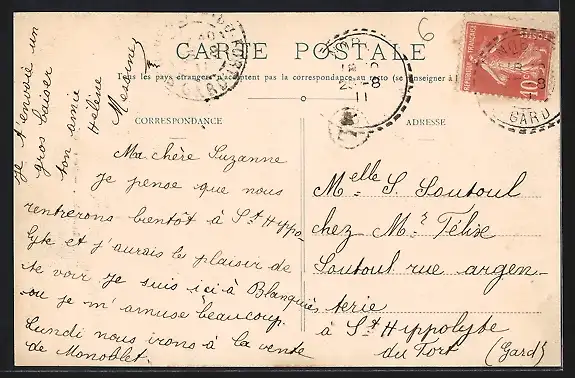 CARTE POSTALE
Tous les pays étrangers n'acceptent pas la correspondance au recto (se renseigner à l
CORRESPONDANCE
Ma chère Suzanne
je pense que nous
rentrerons bientôt à St Hyppo-
lyte et j'aurais le plaisir de
te voir je suis ici à Blanquiès
ou je m'amuse beaucoup.
Lundi nous irons à la vente
de Monoblet.
je t'envoie un
gros baiser
ton amie
Hélène
ADRESSE
Melle S. Soutoul
chez Mr Félix
Soutoul rue argen-
terie
à St Hippolyte
du Fort (Gard)
6
REPUBLIQUE FRANÇAISE
POSTES
10
GARD
8
11